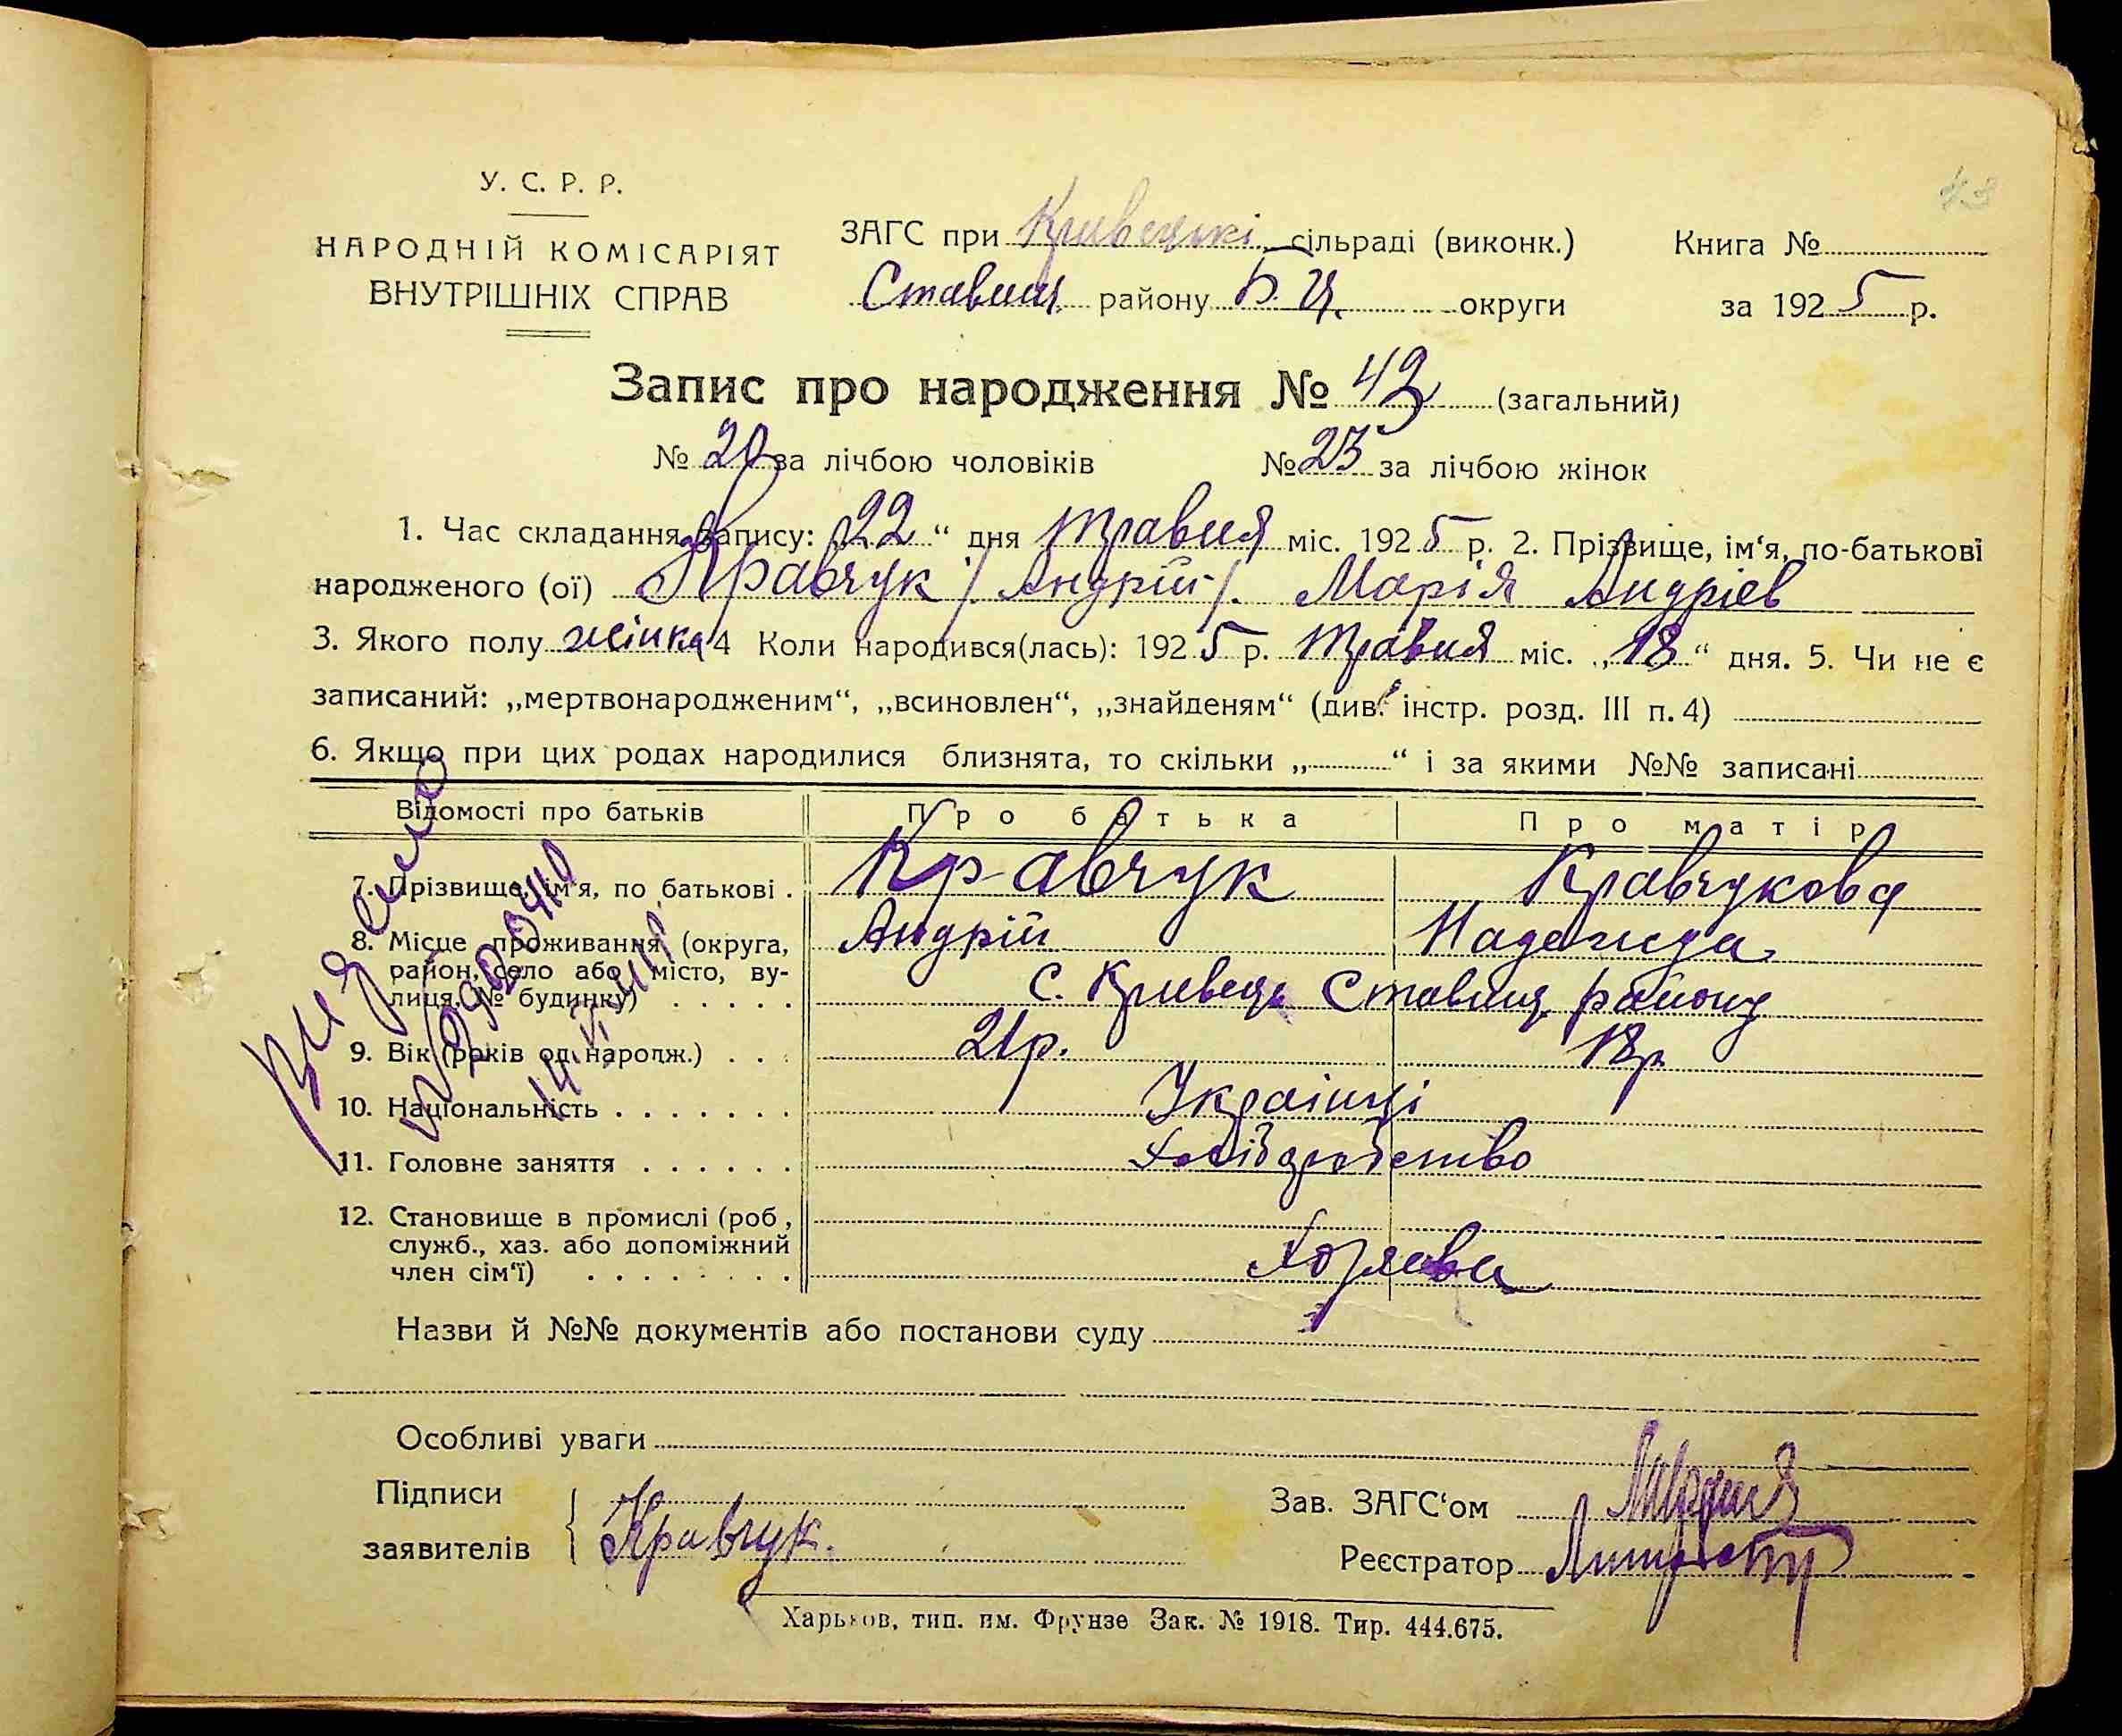 43
У. С. Р. Р.
НАРОДНІЙ КОМІСАРІЯТ
ВНУТРІШНІХ СПРАВ
ЗАГС при Кривецькі сільраді (виконк.)
Ставищ. району Б. Ц. округи
Книга №
за 1925 р.
Запис про народження № 43 (загальний)
№ 20 за лічбою чоловіків № 23 за лічбою жінок
1. Час складання запису: „22“ дня травня міс. 1925 р. 2. Прізвище, ім‘я, по-батькові
народженого (ої) Кравчук /Андрій/. Марія Андріев
3. Якого полу жінка 4 Коли народився(лась): 1925 р. травня міс. „18“ дня. 5. Чи не є
записаний: „мертвонародженим“, „всиновлен“, „знайденям“ (див. інстр. розд. III п. 4)
6. Якщо при цих родах народилися близнята, то скільки „ “ і за якими №№ записані
Відомості про батьків Про батька Про матір
7. Прізвище, ім‘я, по батькові . Кравчук Кравчукова
8. Місце проживання (округа, Андрій Надежда
район, село або місто, ву-
лиця, № будинку) . . . . . с. Кривець Ставищ. району
9. Вік (років од народж.) . . . 21р. 18р
10. Національність . . . . . . . Українці
11. Головне заняття . . . . . . Хліборобство
12. Становище в промислі (роб,
служб., хаз. або допоміжний
член сім‘ї) . . . . . . . .
Назви й №№ документів або постанови суду
Особливі уваги
Підписи
заявителів Кравчук.
Зав. ЗАГС‘ом
Реєстратор
Харьков, тип. им. Фрунзе Зак. № 1918. Тир. 444.675.